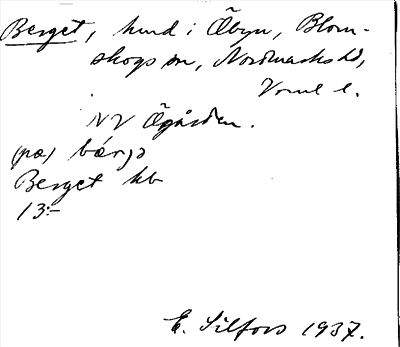 Berget, hmd i Öbyn, Blom-
skogs sn, Nordmarks hd,
Vrml l.
NV Ögården.
(pα) bærjə
Berget hb
13:-
E. Silfors 1937.